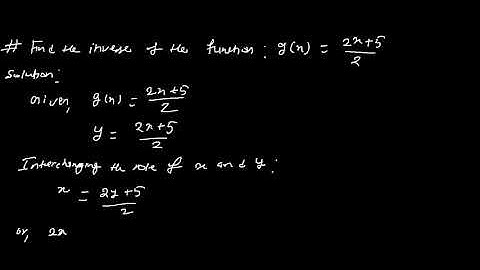 # Find the inverse of the function: g(x) = (2x+5)/2
Solution:
Given, g(x) = (2x+5)/2
y = (2x+5)/2
Interchanging the role of x and y:
x = (2y+5)/2
or, 2x